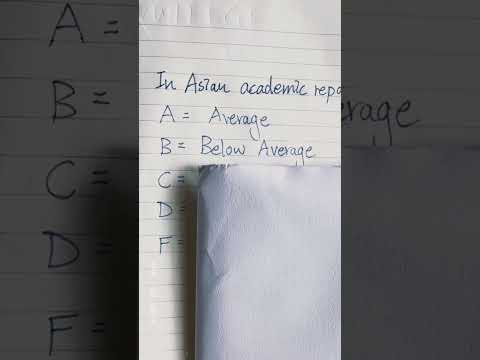 In Asian academic repo
A = Average
B = Below Average
C =
D =
F =